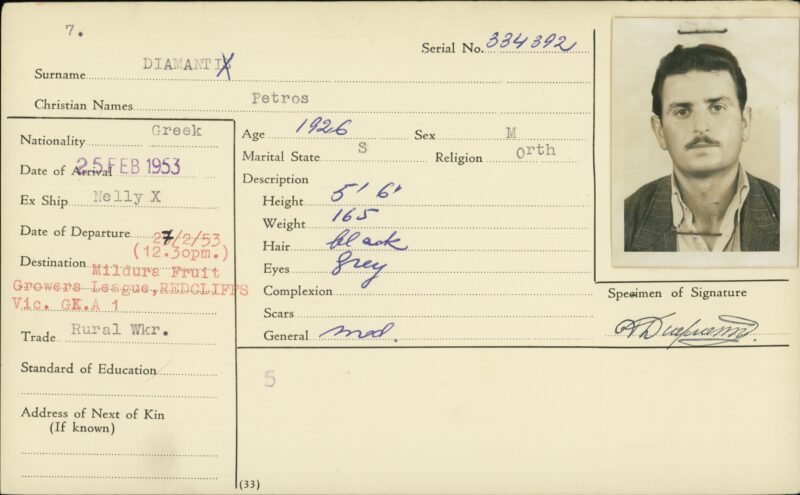 7.
Serial No. 334392
Surname DIAMANTIS
Christian Names Petros
Nationality Greek
Date of Arrival 25 FEB 1953
Ex Ship Nelly X
Date of Departure 27/2/53
(12.30pm.)
Destination Mildura Fruit
Growers League, REDCLIFFS
Vic. GK.A 1
Trade Rural Wkr.
Standard of Education
Address of Next of Kin
(If known)
Age 1926 Sex M
Marital State S Religion Orth
Description
Height 5' 6'
Weight 165
Hair black
Eyes grey
Complexion
Scars
General med.
5
(33)
Specimen of Signature